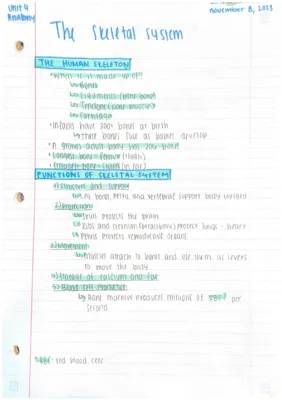 Unit 4
Anatomy
november 8, 2023
The skeletal system
THE HUMAN SKELETON
• What is it made up of?
↳ Bones
↳ Ligaments (bone-bone)
↳ Tendons (bone-muscle)
↳ Cartilage
• Infants have 300+ bones at birth
↳ these bones fuse as babies develop
• A grown adult body has 206 bones
• Longest bone = femur (thigh)
• Smallest bone = (in ear)
FUNCTIONS OF SKELETAL SYSTEM
1) Structure and support
↳ Leg bones, pelvis and vertebrae support body upright
2) Protection
↳ Skull protects the brain
↳ Ribs and sternum protect lungs + heart
↳ Pelvis protects reproductive organs
3) Movement
↳ Muscles attach to bones and use them as levers
to move the body
4) Storage of calcium and fat
5) Blood cell production
↳ Bone marrow produces millions of per
second
red blood cell